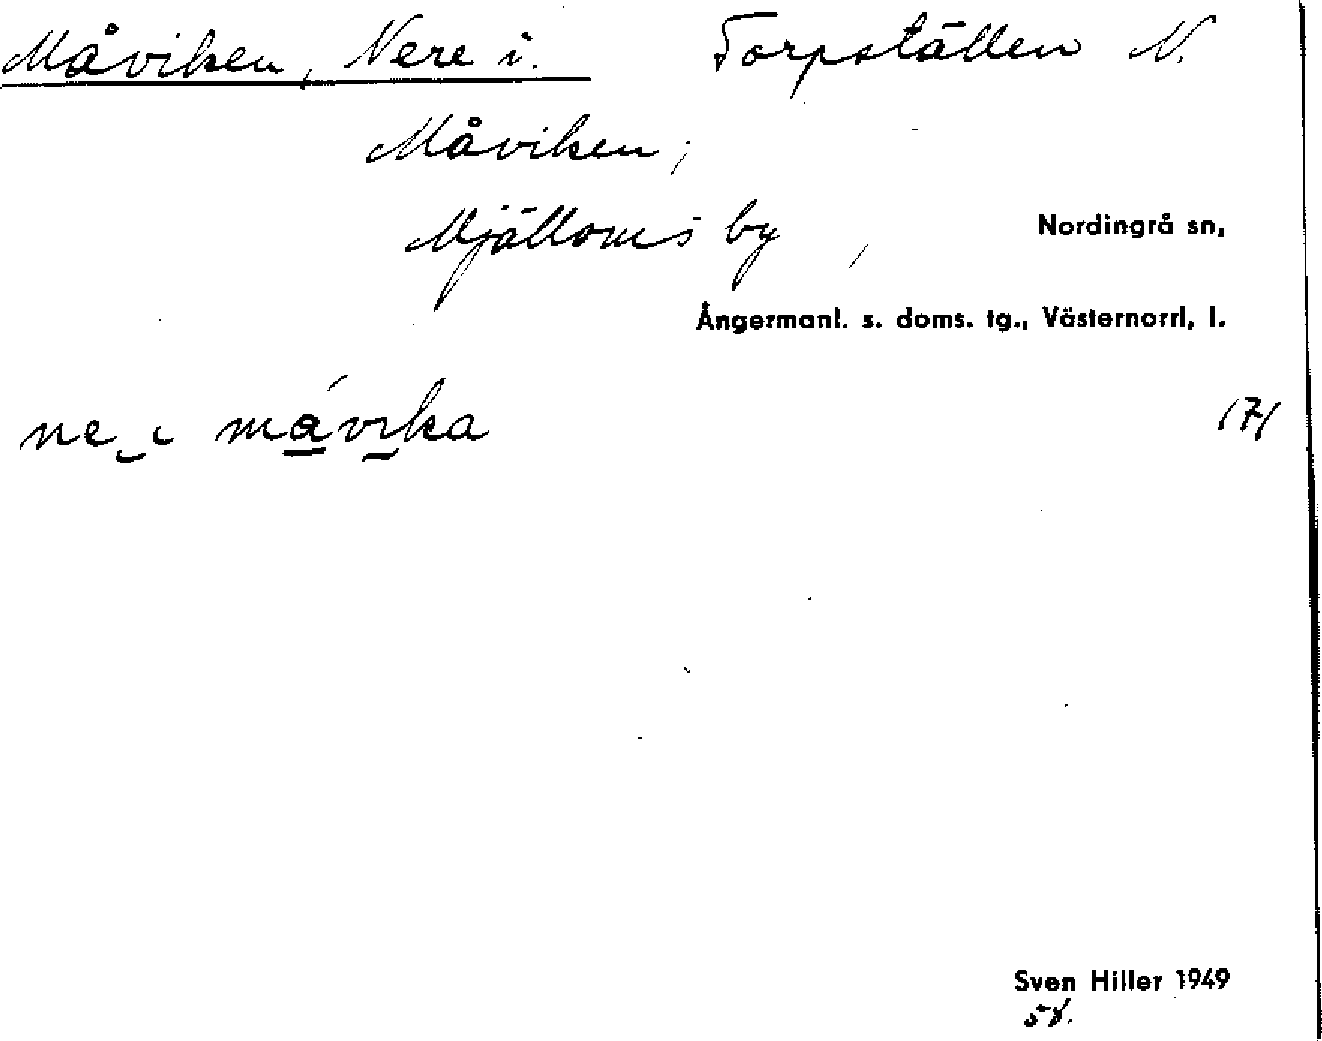 Måviken, Nere i. Torpställen N.
Måviken,
Mjälloms by,
Nordingrå sn,
Ångermanl. s. doms. tg., Västernorrl. l.
ne i måvika
Sven Hiller 1949